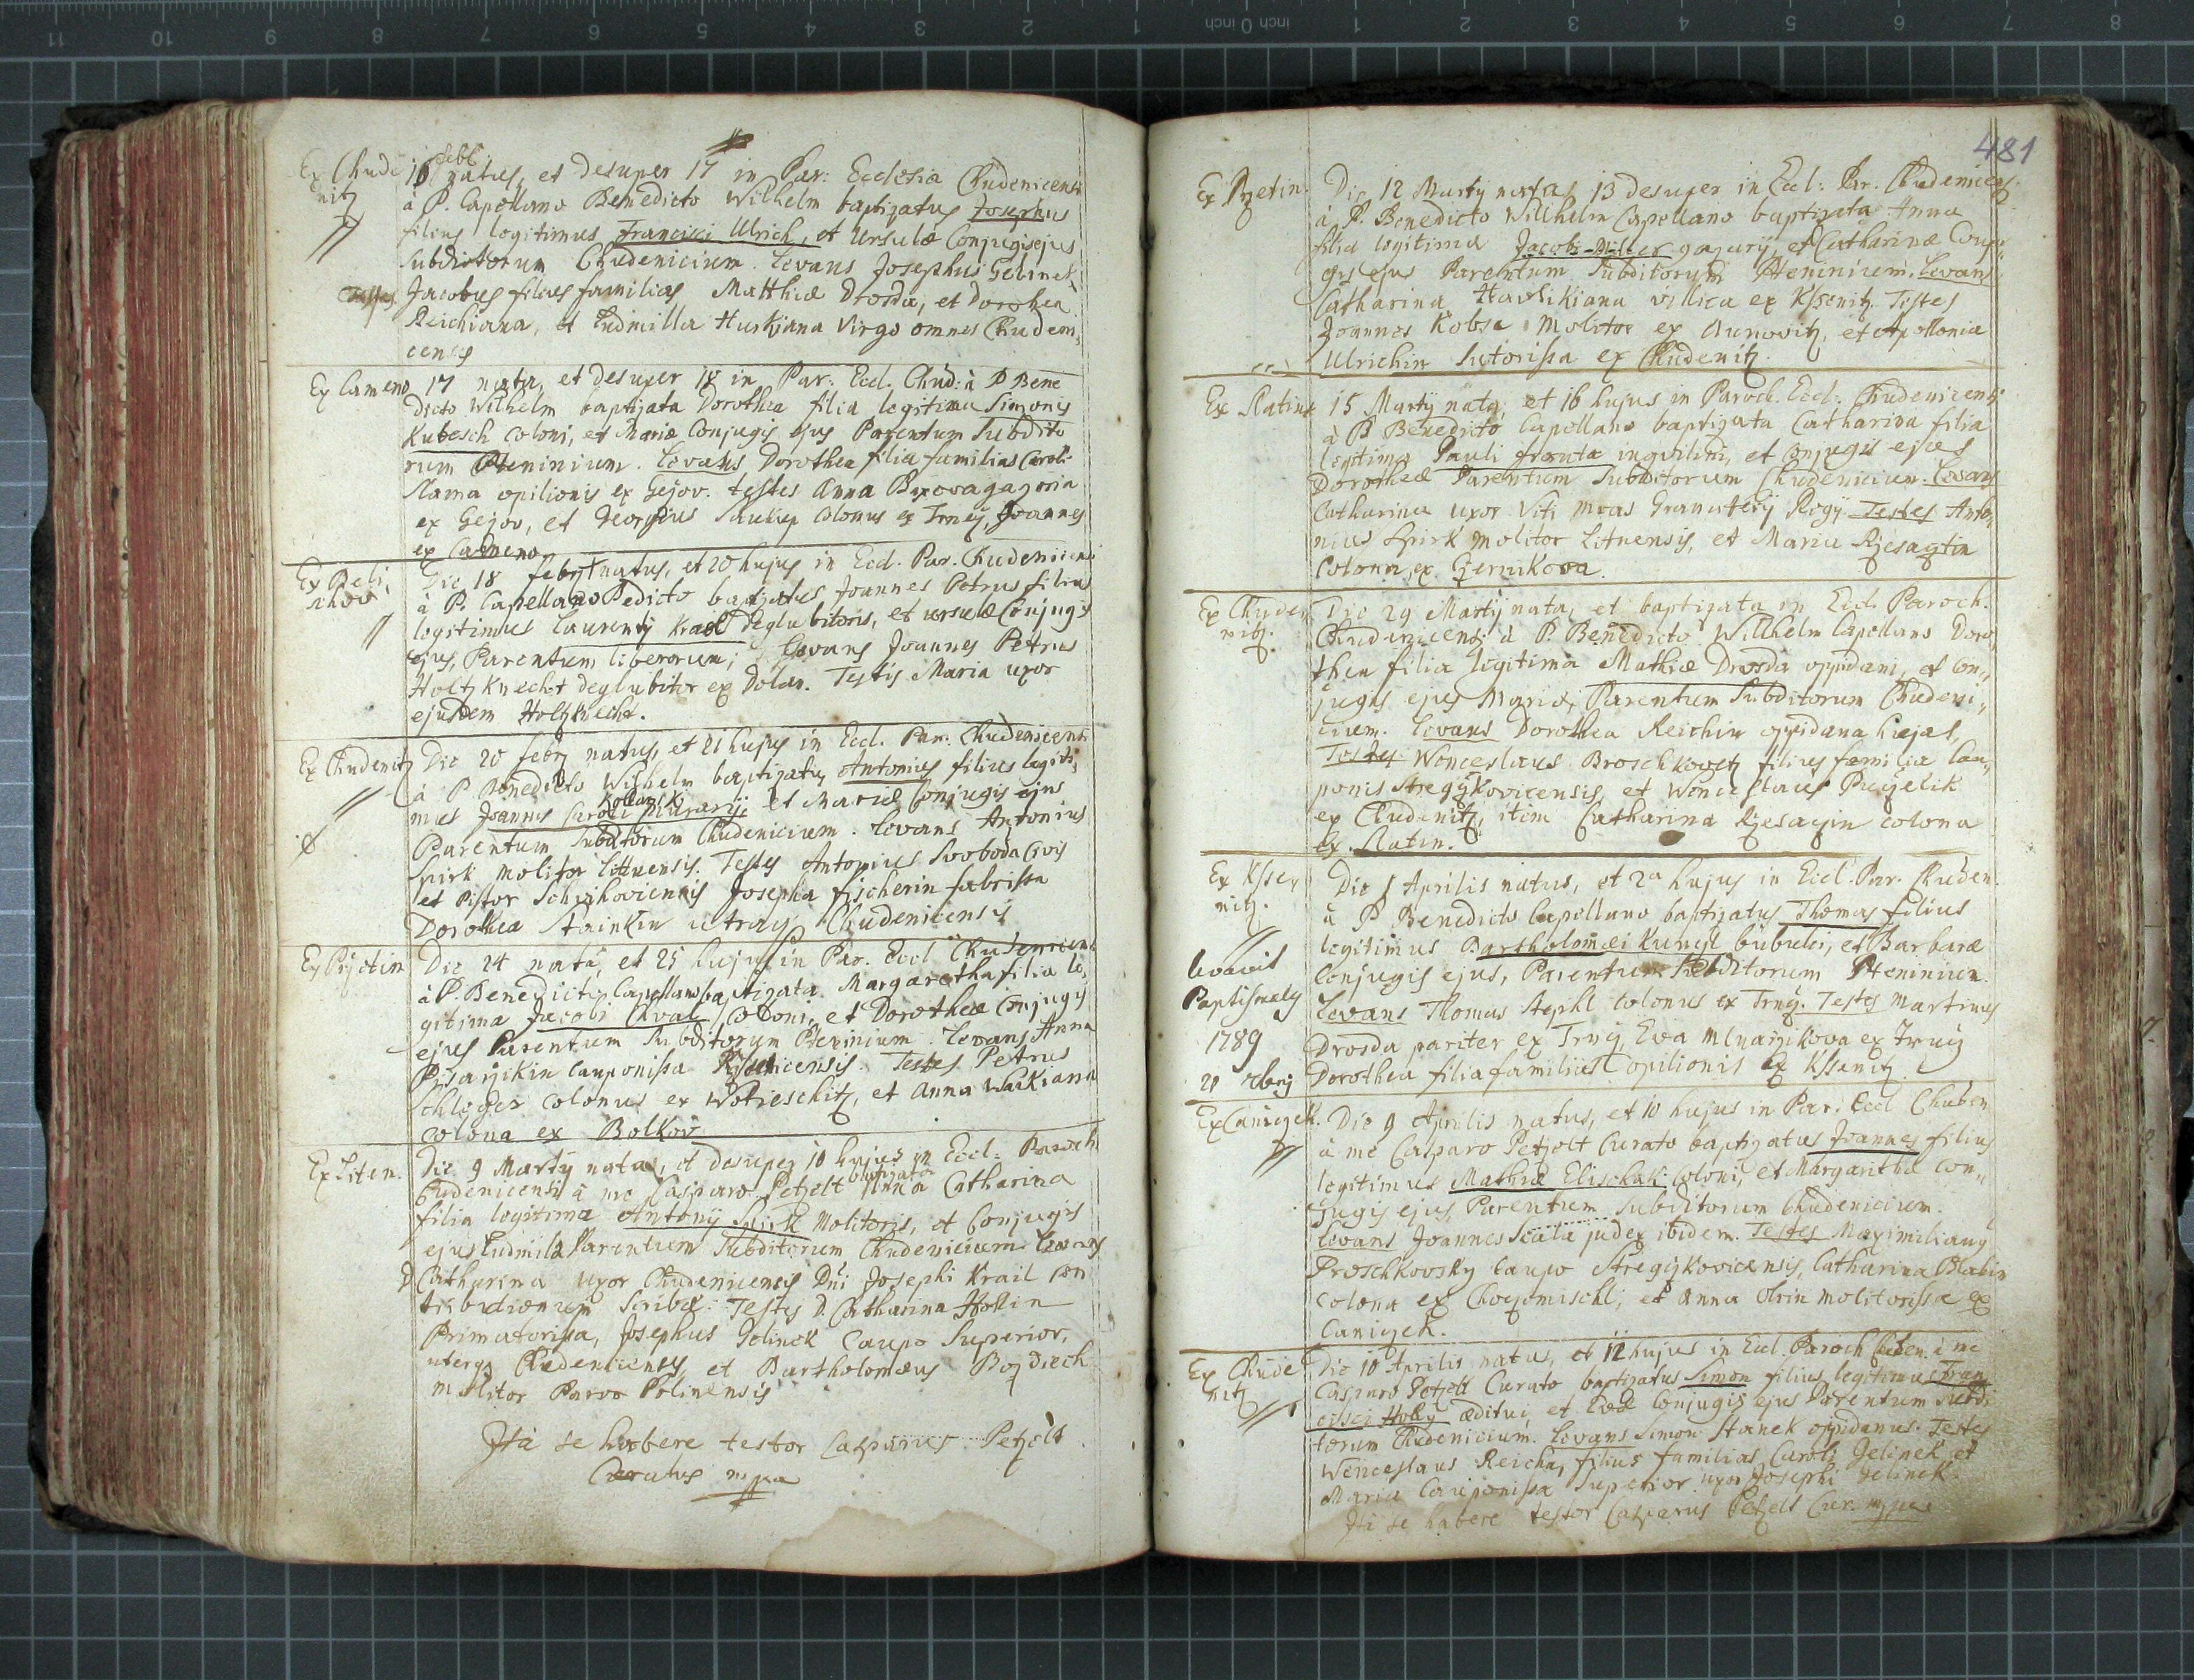 11 10 9 8 7 6 5 4 3 2 1 0 inch 1 2 3 4 5 6 7 8
Ex Chude
nitz
16 febr. natus, et desuper 17 in Par: Ecclesia Chudenicensi
à P. Capellano Benedicto Wilhelm baptizatus Josephus
filius legitimus Francisci Ulrich, et Ursulæ Conjugis ejus
Subditorum Chudenicium. Levans Josephus Gelinek,
Testes Jacobus filius familias Matthiæ Drosda, et Dorothea
Reichiana, et Ludmilla Huskiana Virgo omnes Chudeni,,
censes
Ex Cameno 17 nata, et desuper 18 in Par: Eccl. Chud: à P Bene
dicto Wilhelm baptizata Dorothea filia legitima Simonis
Kubesch coloni, et Mariæ Conjugis ejus Parentum Subdito
rum Pteninium. Levans Dorothea filia familias Caroli
Slama opilionis ex Gejov. testes Anna
ex Gejov, et Georgius colonus ex Trney, Joannes
ex Cameno
Ex Beli,
schov
Die 18 febrj natus, et 20 hujus in Eccl. Par. Chudenicensi
à P. Capellano Bedicto baptizatus Joannes Petrus filius
legitimus Laurentij Krael deglubitoris, et ursulæ Conjugis
ejus, Parentum liberorum; Levans Joannes Petrus
Holtzknecht deglubitor ex Dolan. Testis Maria uxor
ejusdem Holtzknecht.
Ex Chudenitz Die 20 febrj natus, et 21 hujus in Eccl. Par. Chudenicensi
à P. Benedicto Wilhelm baptizatus Antonius filius legiti,,
mus Joannis Caroli Kollarik murarij, et Mariæ Conjugis ejus
Parentum Subditorum Chudenicium. Levans Antonius
Spirk molitor Littuensis. Testes Antonius Svoboda Civis
et Pistor Schwihoviensis Josepha Fischerin fabrissa
Dorothea Stainkin utraq Chudenicensis
Ex Przetin Die 24 nata, et 25 hujus in Par. Eccl Chudenicensi
à P. Benedicto Capellano baptizata Margaretha filia le,
gitima Jacobi Chval coloni, et Dorotheæ Conjugis
ejus Parentum Subditorum Pteninium. Levans Anna
Pisarzikin cauponissa Kssenicensis. Testes Petrus
Schleger colonus ex Wotieschitz, et Anna
colona ex Bolkov
Ex Liten. Die 9 Martij nata, et desuper 10 hujus in Eccl: Paroch
Chudenicensi à me Casparo Petzelt baptizata Anna Catharina
filia legitima Antonij Spirk Molitoris, et Conjugis
ejus Ludmilæ Parentum Subditorum Chudenicium. Levans
D Catharina uxor Chudenicensis Dni Josephi Krail con
tributionum Scribæ. Testes D. Catharina Hollin
Primatorissa, Josephus Gelinek Caupo Superior,
uterq Chudenicenses, et Bartholomæus Bozdiech
molitor Parvo Polinensis
Ita se habere testor Casparus Petzelt
Curatus mppa
481
Ex Przetin. Die 12 Martij nata, 13 desuper in Eccl: Par. Chudenicensi
à P. Benedicto Willhelm Capellano baptizata Anna
filia legitima Jacobi Miller gazarij, et Catharinæ Conju,,
gis ejus Parentum Subditorum Pteninium. Levans
Catharina Havlikiana villica ex Kssenitz. Testes
Joannes Kobsa Molitor ex Aunovitz, et Apollonia
Ulrichin Sutorissa ex Chudenitz.
Ex Slatin 15 Martij nata, et 16 hujus in Paroch. Eccl. Chudenicensi
à P Benedicto Capellano baptizata Catharina filia
legitima Pauli Franta inquilini, et Conjugis ejus
Dorotheæ Parentum Subditorum Chudenicium. Levans
Catharina uxor Viti Mras Granaterij Rogij. Testes Anto,
nius Spirk molitor Lituensis, et Maria Rzesagtin
Colona ex Czernikova.
Ex Chude
nitz.
Die 29 Martij nata, et baptizata in Eccl. Paroch.
Chudenicensi à P. Benedicto Willhelm Capellano Doro
thea filia legitima Mathiæ Drosda oppidani, et Con,,
jugis ejus Mariæ, Parentum Subditorum Chudeni,,
cium. Levans Dorothea Reichin oppidana hujas,
Testes Wenceslaus Broschkovetz filius familiæ Cau,,
ponis Stregzkovicensis, et Wenceslaus Przezelik
ex Chudenitz, item Catharina Rzesagin colona
ex Slatin.
Ex Ksse,
nitz.
Levavit
Baptismales
1789
21 xbrij
Die 1 Aprilis natus, et 2a hujus in Eccl. Par. Chuden.
à P Benedicto Capellano baptizatus Thomas filius
legitimus Bartholomæi Kunesl bubulci, et Barbaræ
Conjugis ejus, Parentum Subditorum Pteninium.
Levans Thomas Stephl colonus ex Trnij. Testes Martinus
Drosda pariter ex Trnij, Eva Mlnarzikova ex Trnij
Dorothea filia familias opilionis ex Kssenitz.
Ex Canizek. Die 9 Aprilis natus, et 10 hujus in Par. Eccl Chuden
à me Casparo Petzelt Curato baptizatus Joannes filius
legitimus Mathiæ Elischak coloni, et Margarithæ Con,,
jugis ejus, Parentum Subditorum Chudenicium.
Levans Joannes Scala judex ibidem. Testes Maximilianus
Proschkovsky Caupo Stregzkovicensis, Catharina Blahin
colona ex Chocomischl, et Anna Olrin molitorissa ex
Canizek.
Ex Chude
nitz
Die 10 Aprilis natus, et 12 hujus in Eccl. Paroch Chuden. à me
Casparo Petzelt Curato baptizatus Simon filius legitimus Fran
cisci Holly æditui, et Evæ Conjugis ejus Parentum Subdi
torum Chudenicium. Levans Simon Stanek oppidanus. Testes
Wenceslaus Reicha, filius familias Caroli Jelinek, et
Maria Cauponissa Superior uxor Josephi Jelinek.
Ita se habere testor Casparus Petzelt Cur. mppa